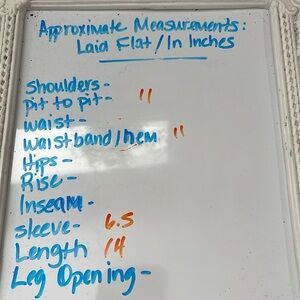 Approximate Measurements:
Laid Flat/In Inches
Shoulders-
Pit to pit- 11
waist-
waistband/hem 11
Hips-
Rise-
Inseam-
sleeve- 6.5
Length 14
Leg Opening-